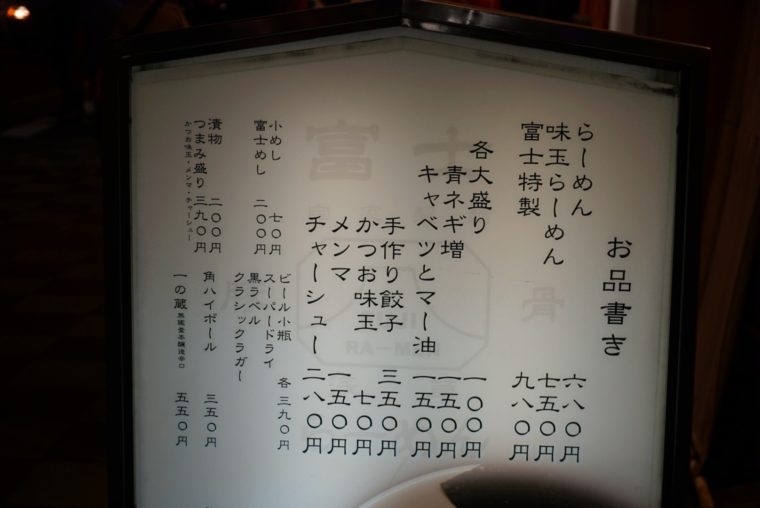 お品書き
らーめん 六八〇円
味玉らーめん 七五〇円
富士特製 九八〇円
各大盛り 一〇〇円
青ネギ増 一五〇円
キャベツとマー油 一五〇円
手作り餃子 三五〇円
かつお味玉 七〇円
メンマ 一五〇円
チャーシュー 二八〇円
小めし 七〇円
富士めし 二〇〇円
ビール小瓶
スーパードライ
黒ラベル
クラシックラガー
各三九〇円
漬物 二〇〇円
つまみ盛り 三九〇円
かつお味玉・メンマ・チャーシュー
角ハイボール 三五〇円
一の蔵 無鑑査本醸造辛口 五五〇円
富士
骨
RA-MEN